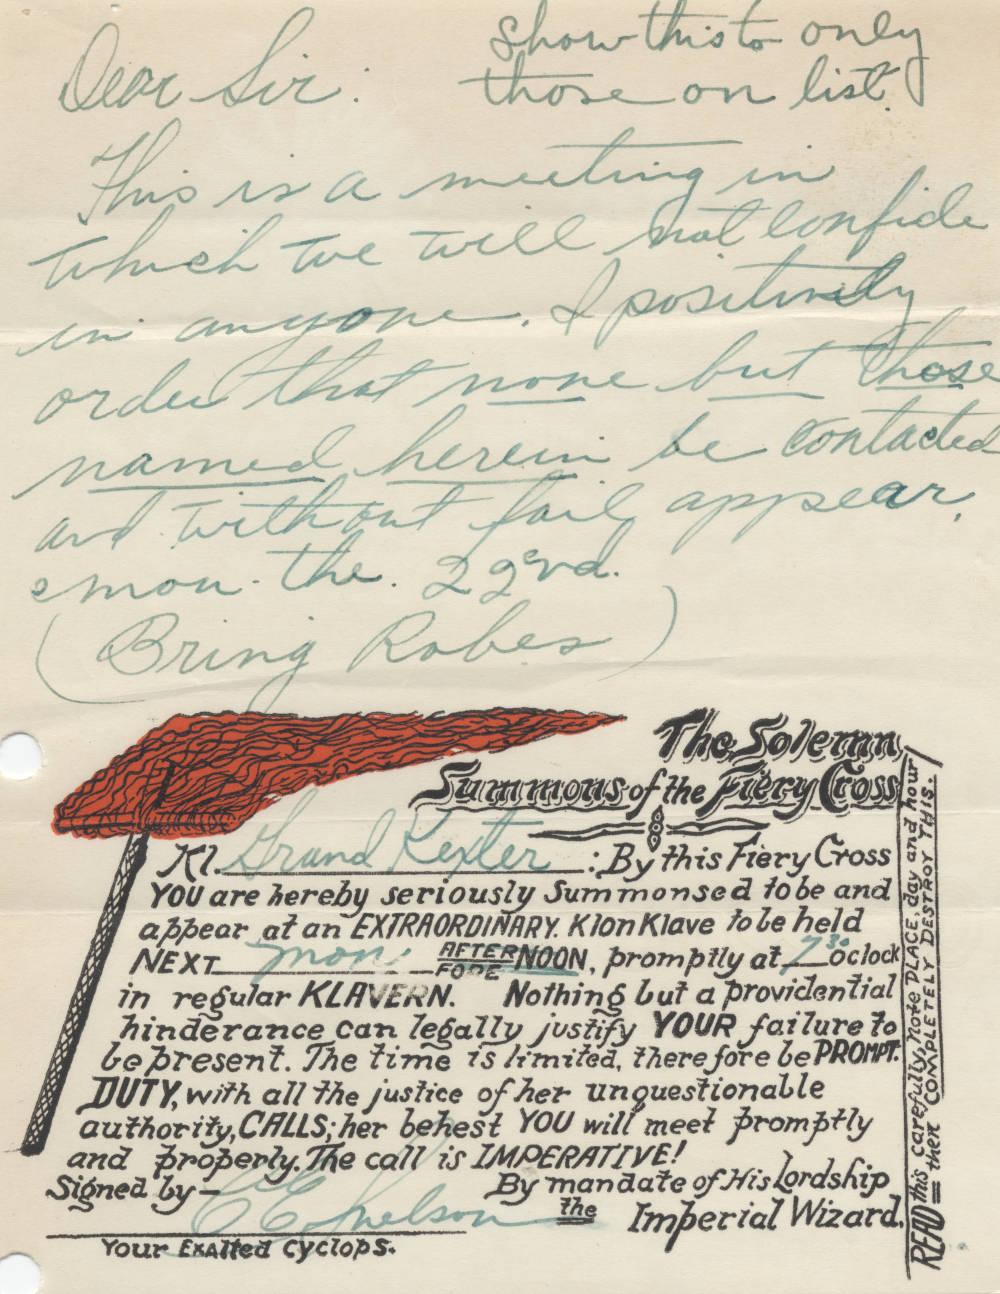 Dear Sir. Show this to only
those on list.
This is a meeting in
which we will not confide
in anyone. I positively
order that none but those
named herein be contacted
and without fail appear.
mon. the. 22nd.
(Bring Robes)
The Solemn
Summons of the Fiery Cross
Kl. Grand Kexter : By this Fiery Cross
YOU are hereby seriously Summonsed to be and
appear at an EXTRAORDINARY. KlonKlave to be held
NEXT mon. AFTER FORE NOON, promptly at 7 30 oclock
in regular KLAVERN. Nothing but a providential
hinderance can legally justify YOUR failure to
be present. The time is limited, therefore be PROMPT.
DUTY, with all the justice of her unquestionable
authority, CALLS; her behest YOU will meet promptly
and properly. The call is IMPERATIVE!
Signed by — By mandate of His Lordship
the Imperial Wizard.
Your Exalted Cyclops.
READ this carefully, note PLACE, day and hour
= then COMPLETELY DESTROY THIS.